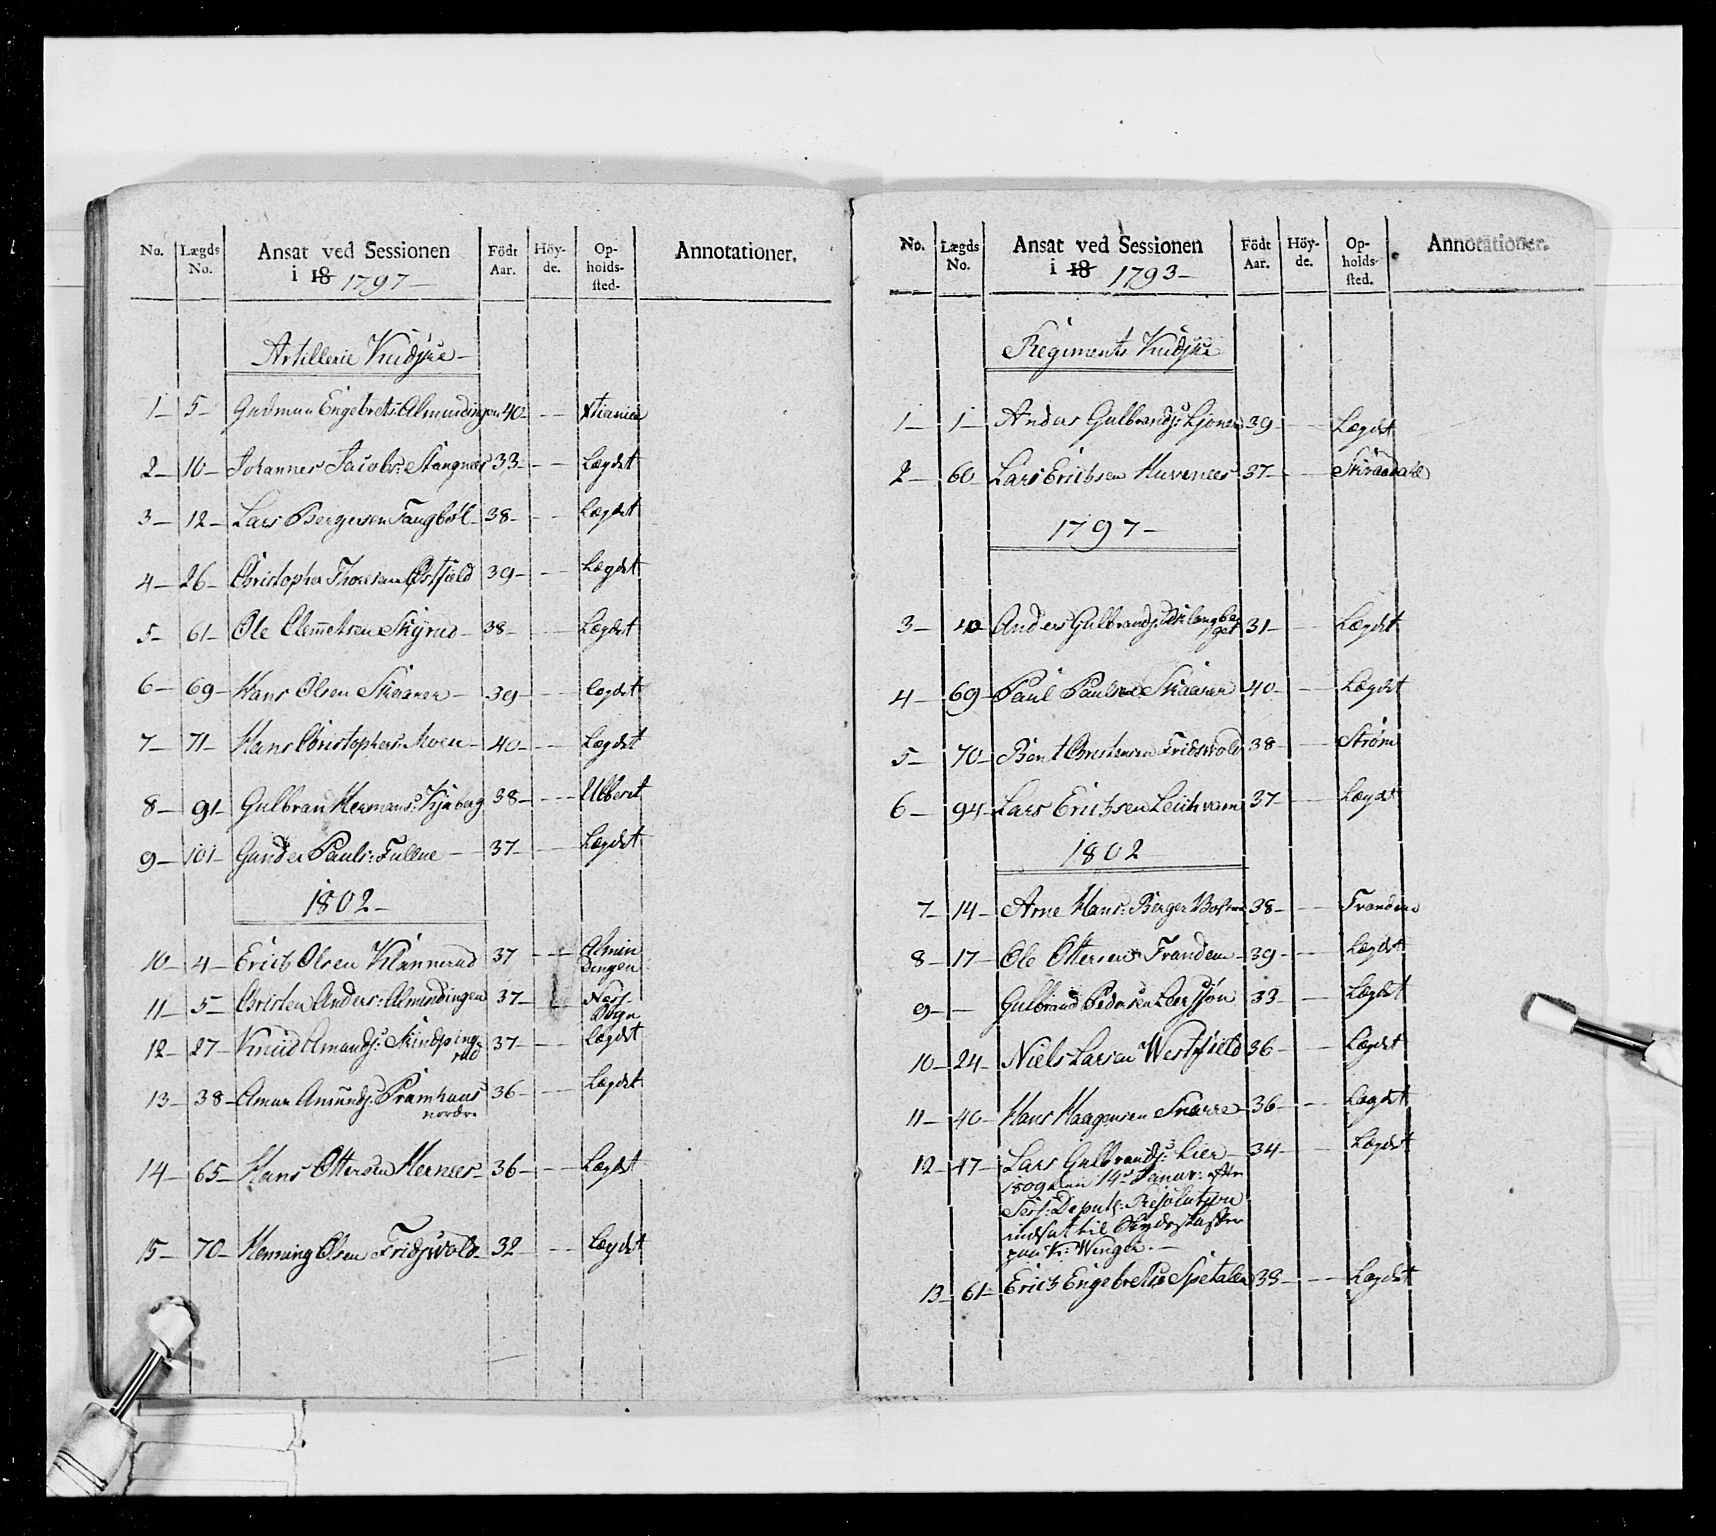 No. Lægds No. Ansat ved Sessionen i 18 1797 – Födt Aar. Höy-de. Op-holds-sted. Annotationer.
Artillerie Kudske –
1 – 5 – Gudmun Engebrets: Almindingen 40 – – – Xtiania
2 – 10 – Johannes Jacobs: Stangnæs 33 – – – Lægdet
3 – 12 – Lars Bergersen Taugböl – 38 – – – Lægdet
4 – 26 – Christopher Thoresen Østfield 39 – – – Lægdet
5 – 61 – Ole Clemmetsen Skÿrud – 38 – – – Lægdet
6 – 69 – Hans Olsen Skaarer – 39 – – – Lægdet
7 – 71 – Hans Christophers: Moen – 40 – – – Lægdet
8 – 91 – Gulbran Hermans: Kjæberg 38 – – – Ulleret
9 – 101 – Gunder Pauls: Fullue – 37 – – – Lægdet
1802 –
10 – 4 – Erich Olsen Klannerud 37 – – Almin
dingen
11 – 5 – Christen Anders: Almindingen 37 – – Næs-
Bygn
12 – 27 – Knud Amunds: Skindping- 37 – – – Lægdet
rud
13 – 38 – Amun Amunds: Pramhuus 36 – – – Lægdet
nordre
14 – 65 – Hans Ottersen Hernæs – 36 – – – Lægdet
15 – 70 – Henning Olsen Fridsvold 32 – – – Lægdet
No. Lægds No. Ansat ved Sessionen i 18 1793 – Födt Aar. Höy-de. Op-holds-sted. Annotationer.
Regiments Kudske
1 – 1 – Anders Gulbrands: Kjonen 39 – – – Lægdet
2 – 60 – Lars Erichsen Huvenæs 37 – – –
1797 –
3 – 40 Anders Gulbrands: 31 – – – Lægdet
4 – 69 – Paul Paulsen Skaarer 40 – – – Lægdet
5 – 70 – Bent Christensen Fridsvold 38 – – – Strøm
6 – 94 – Lars Erichsen Leihvam 37 – – – Lægdet
1802
7 – 14 – Arne Hans: Berger 38 – – – Trandem
8 – 17 – Ole Ottersen Trandem – 39 – – – Lægdet
9 – – Gulbrand Pedersen Leersjøn 33 – – – Lægdet
10 – 24 – Niels Larsen Westfield 36 – – – Lægdet
11 – 40 – Hans Haagensen Snarre – 36 – – – Lægdet
12 – 47 – Lars Gulbrands: Lier – 34 – – – Lægdet
1809 den 14de Januar: efter
Sess: Deputs: Resolution
indsat til Skydsskaffer
paa Kr: Winger. –
13 – 61 – Erich Engebretsen Spetalen 38 – – – Lægdet